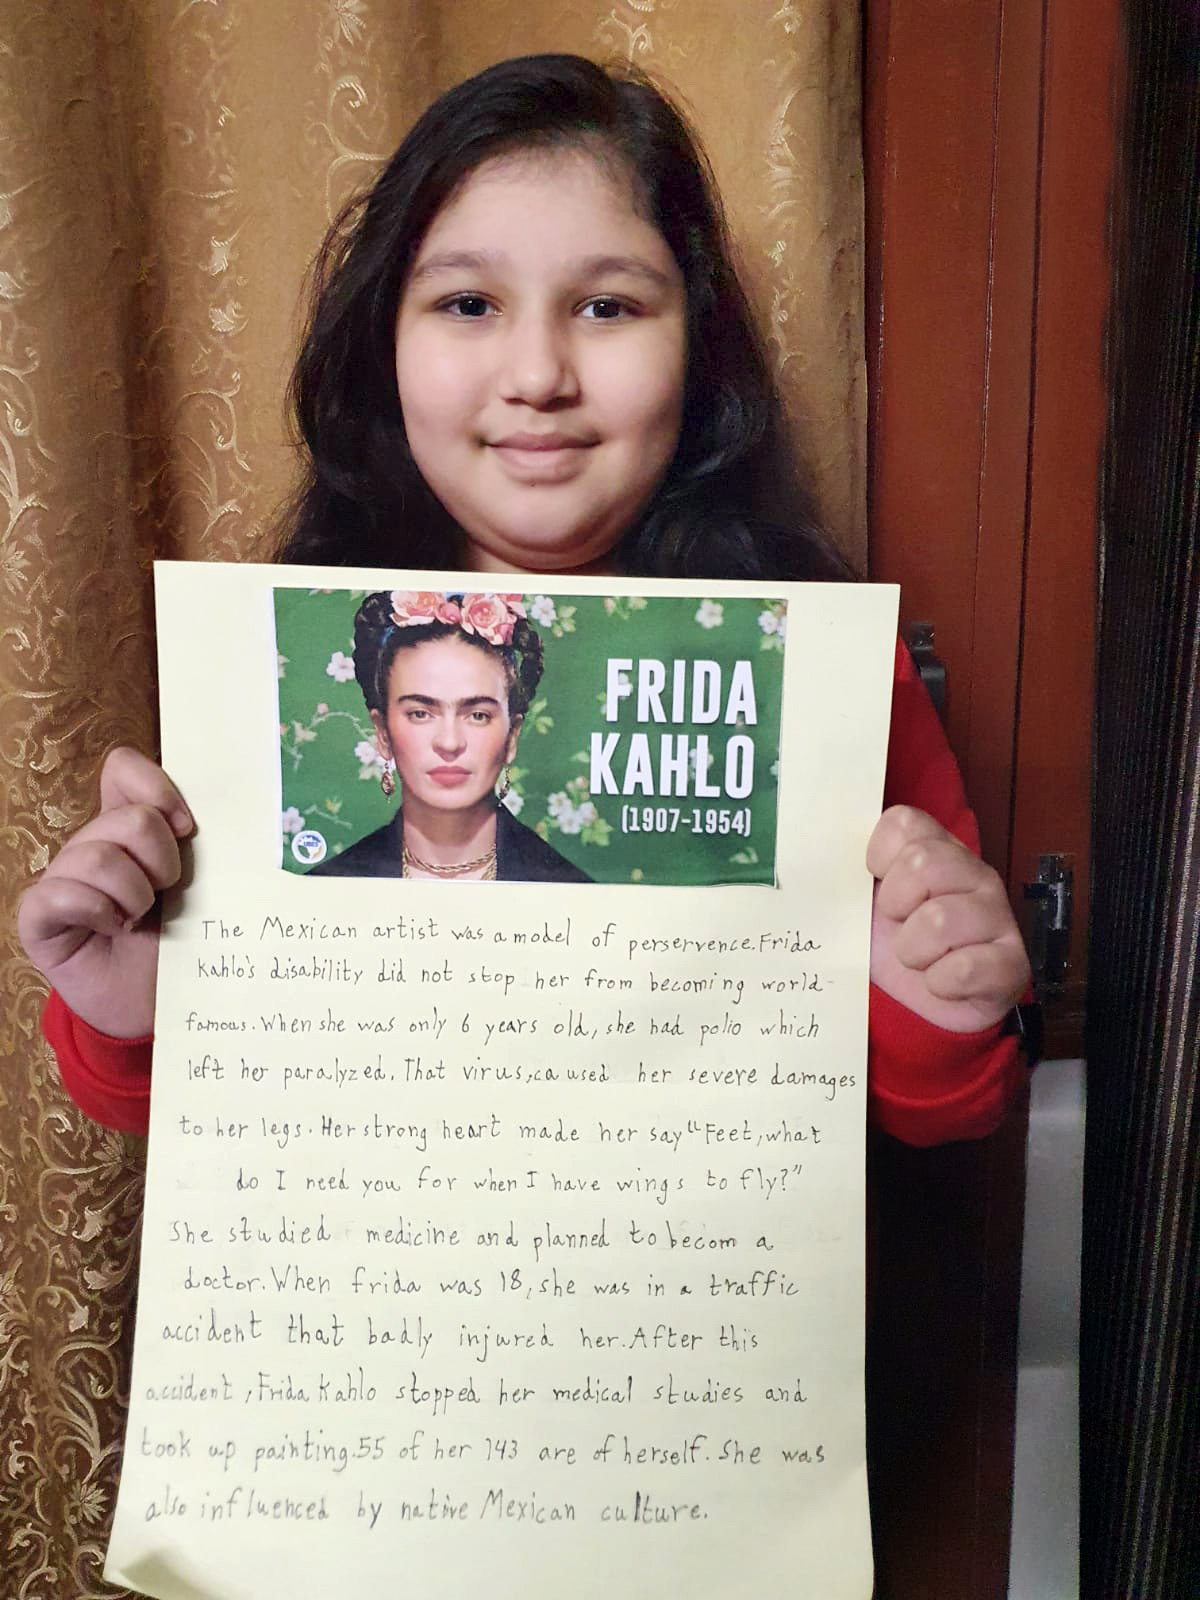 FRIDA
KAHLO
(1907-1954)
The Mexican artist was a model of perservence. Frida
Kahlo's disability did not stop her from becoming world-
famous. When she was only 6 years old, she had polio which
left her paralyzed. That virus, caused her severe damages
to her legs. Her strong heart made her say "Feet, what
do I need you for when I have wings to fly?"
She studied medicine and planned to becom a
doctor. When frida was 18, she was in a traffic
accident that badly injured her. After this
accident, Frida Kahlo stopped her medical studies and
took up painting. 55 of her 143 are of herself. She was
also influenced by native Mexican culture.